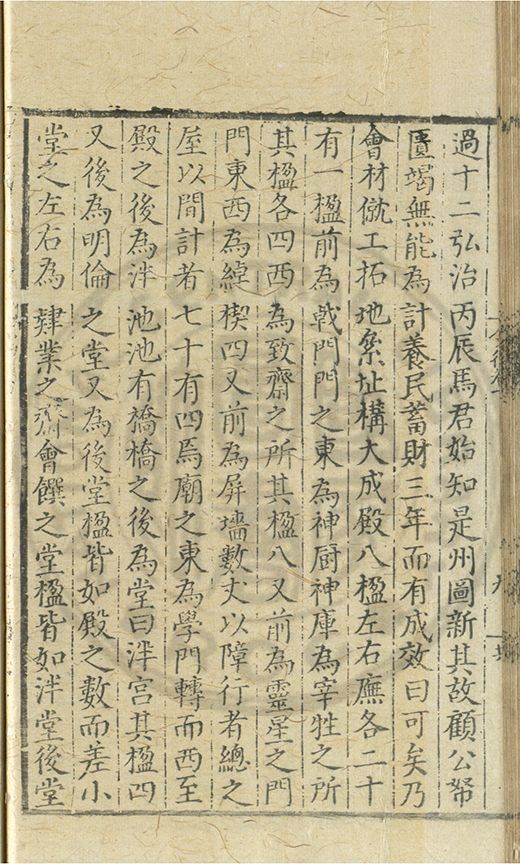 過十二弘治丙辰馬君始知是州圖新其故顧公帑
匱竭無能為計養民蓄財三年而有成效曰可矣乃
會材僦工拓地絫址構大成殿八楹左右廡各二十
有一楹前為戟門門之東為神厨神庫為宰牲之所
其楹各四西為致齋之所其楹八又前為靈星之門
門東西為綽楔四又前為屏墻數丈以障行者總之
屋以間計者七十有四焉廟之東為學門轉而西至
殿之後為泮池池有橋橋之後為堂曰泮宮其楹四
又後為明倫之堂又為後堂楹皆如殿之數而差小
堂之左右為肄業之齋會饌之堂楹皆如泮堂後堂